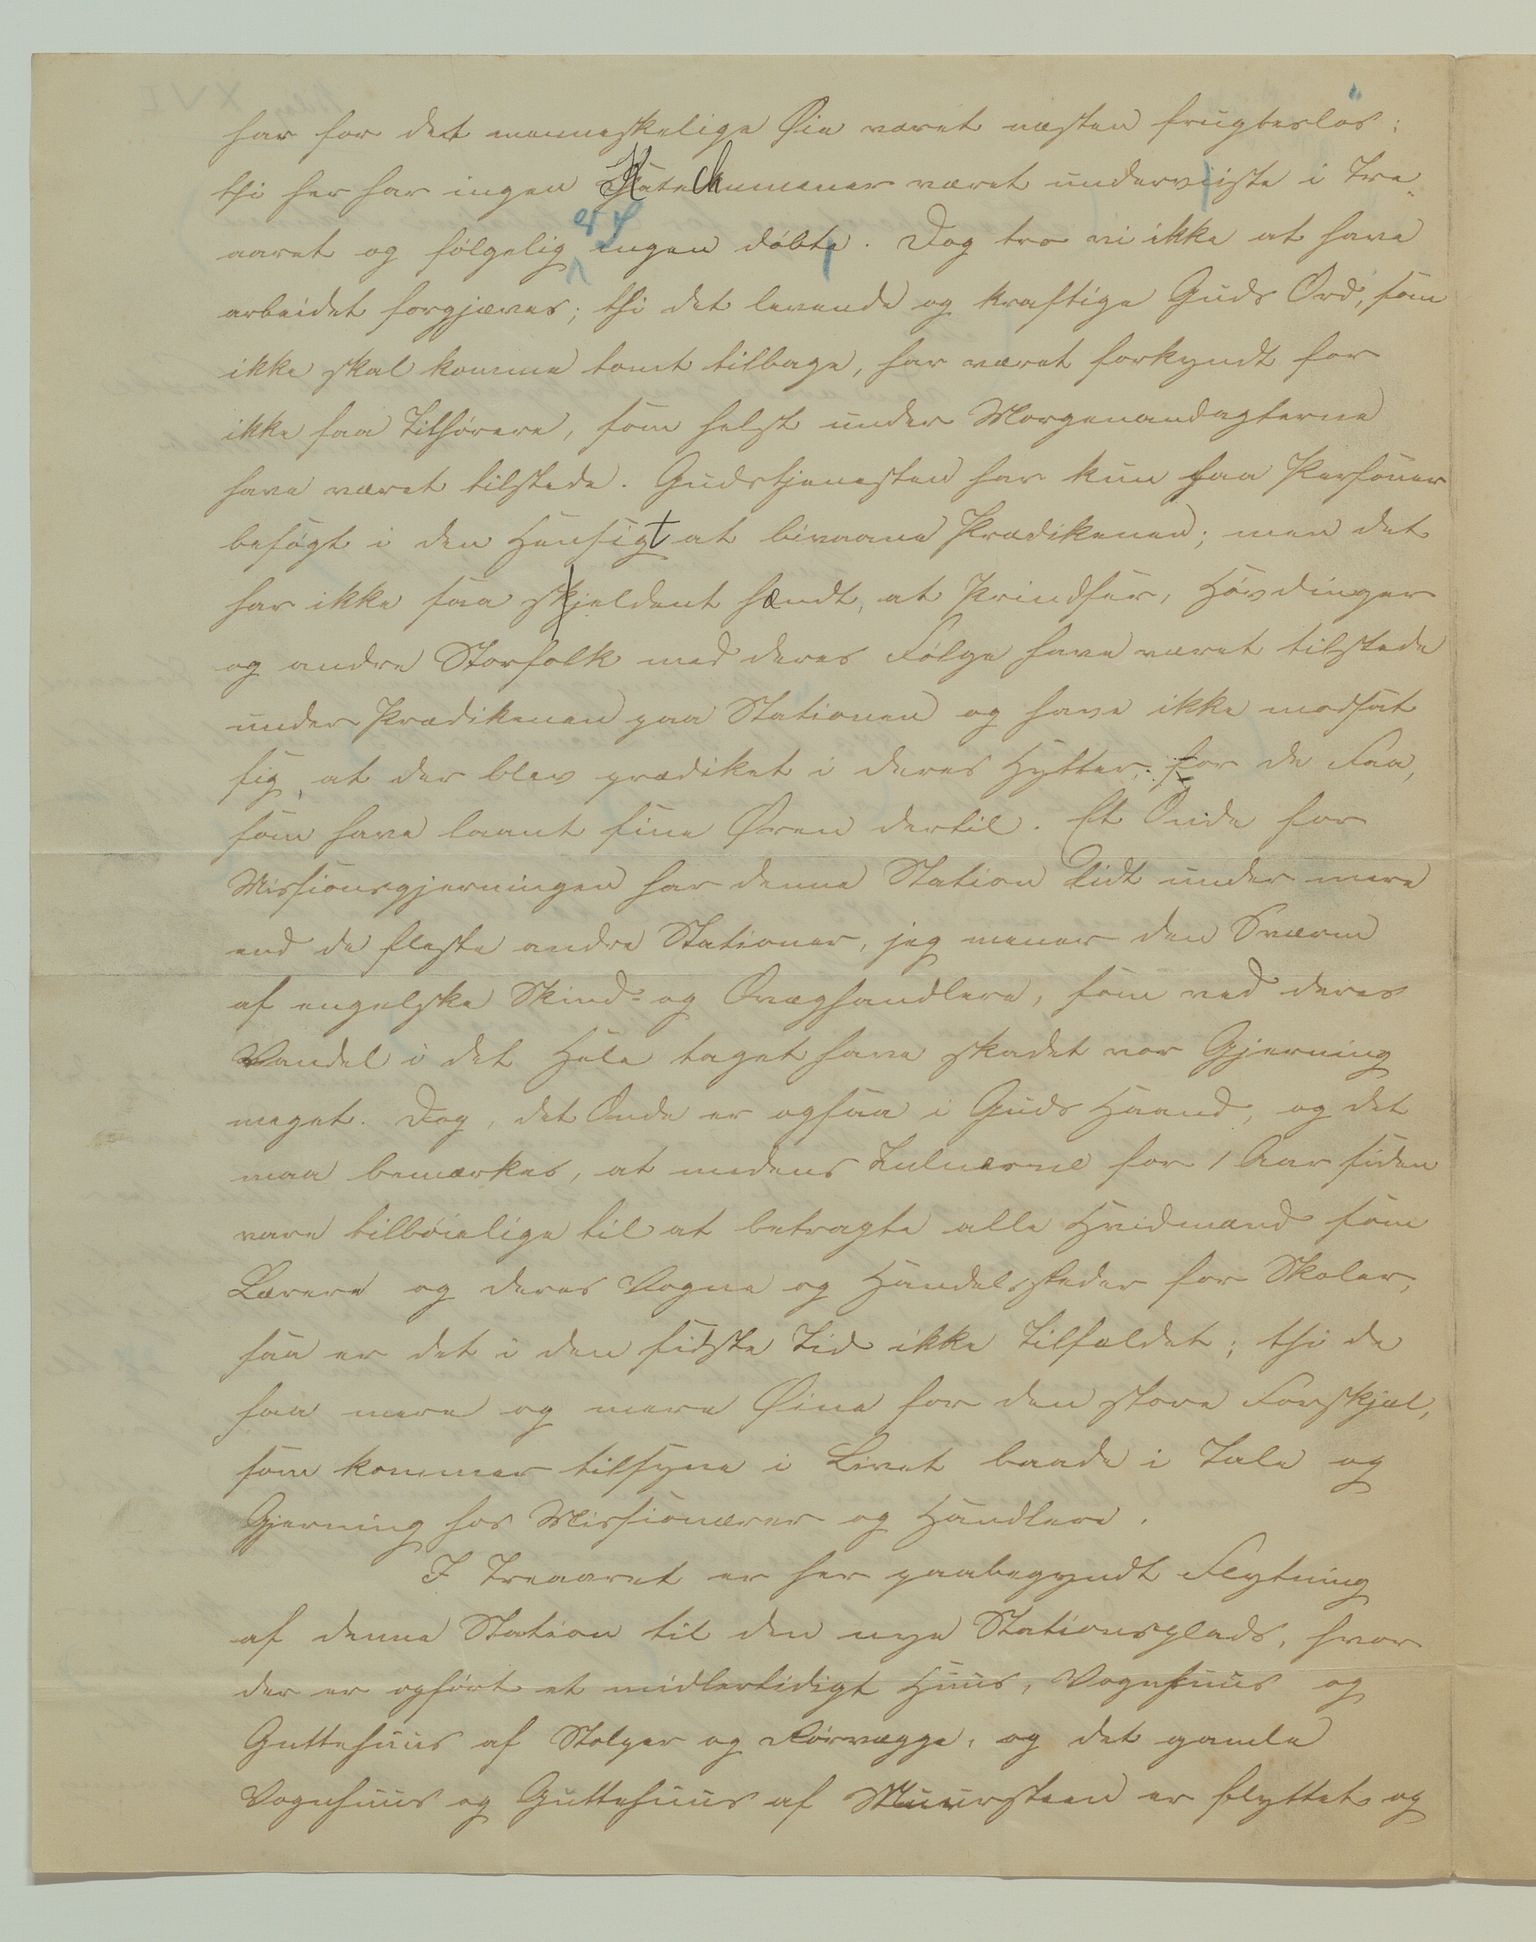 har for det menneskelige Øie været næsten frugtesløs;
thi her har ingen Katechumener været underviiste i Tre-
aaret og følgelig er ingen døbte. Dog tro vi ikke at have
arbeidet forgjæves; thi det levende og kraftige Guds Ord, som
ikke skal komme tomt tilbage, har været forkyndt for
ikke faa Tilhørere, som helst under Morgenandagterne
have været tilstede. Gudstjenesten har kun faa Personer
besøgt i den Hensigt at bivaane Prædikenen; men det
har ikke saa skjeldent hændt, at Prindser, Høvdinger
og andre Storfolk med deres Følge have været tilstede
under Prædikenen paa Stationen og have ikke modsat
sig, at der blev prædiket i deres Hytter, for de Faa,
som have laant sine Øren dertil. Et Onde for
Missionsgjerningen har denne Station lidt under mere
end de fleste andre Stationer, jeg mener den Sværm
af engelske Skind- og Qvæghandlere, som ved deres
Vandel i det Hele taget have skadet vor Gjerning
meget. Dog, det Onde er ogsaa i Guds Haand, og det
maa bemærkes, at medens Zuluerne for 1 Aar siden
vare tilbøielige til at betragte alle Hvidmænd som
Lærere og deres Vogne og Handelssteder for Skoler,
saa er det i den sidste Tid ikke Tilfældet; thi de
faa mere og mere Øine for den store Forskjel,
som kommer tilsyne i Livet baade i Tale og
Gjerning hos Missionærer og Handlere.
I Treaaret er her paabegyndt Flytning
af denne Station til den nye Stationsplads, hvor
der er opført et midlertidigt Huus, Vognhuus og
Guttehuus af Stolper og Rørvægge, og det gamle
Vognhuus og Guttehuus af Muursteen er flyttet og